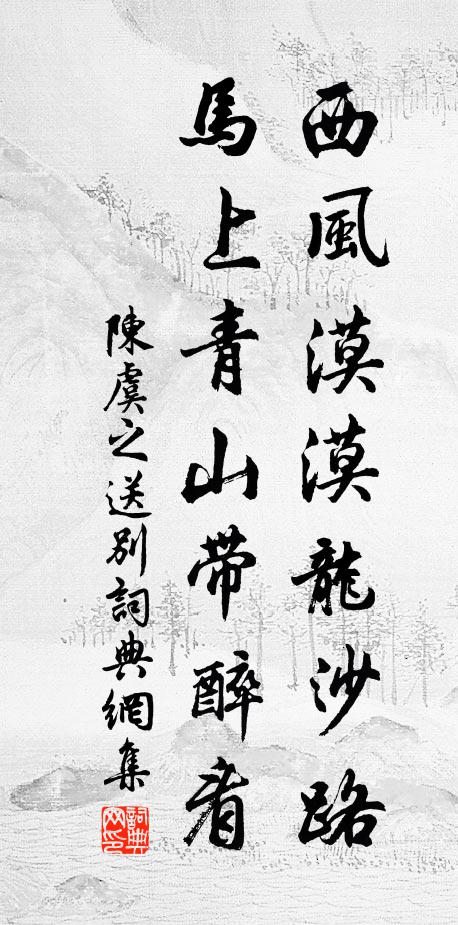 西風漠漠龍沙路
馬上青山帶醉看
陳虞之送別詞典網集
詞典网印